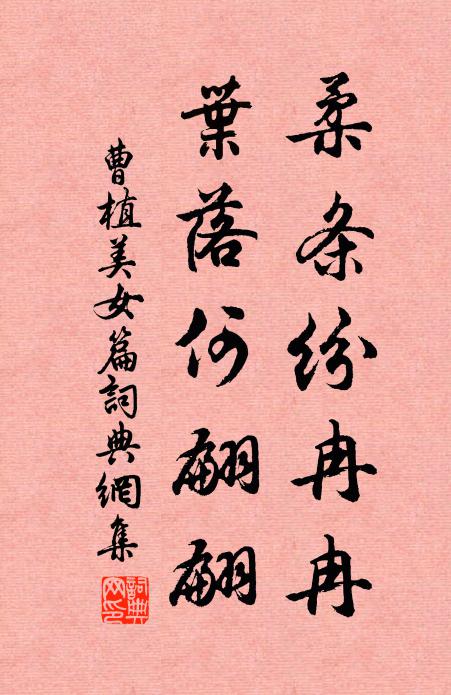 柔条纷冉冉
葉落何翩翩
曹植美女篇詞典網集
詞典网印